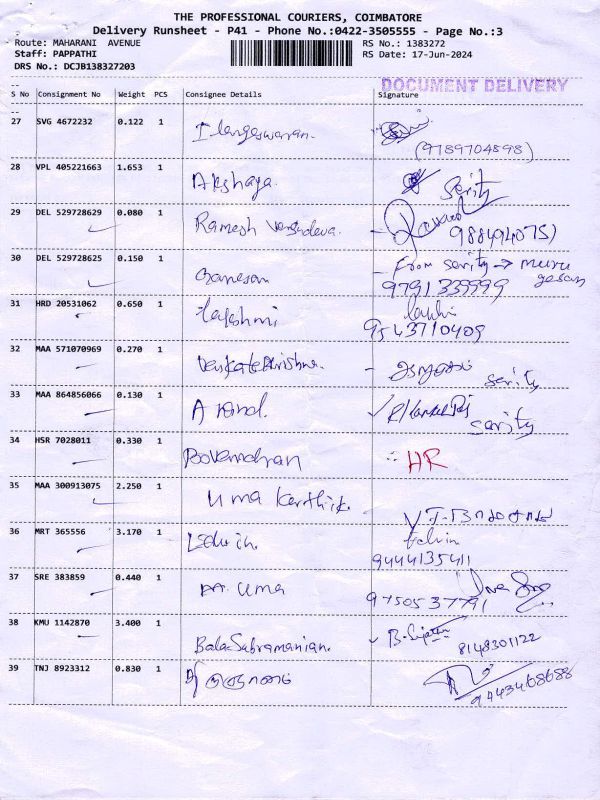 THE PROFESSIONAL COURIERS, COIMBATORE
Delivery Runsheet - P41 - Phone No.:0422-3505555 - Page No.:3
Route: MAHARANI AVENUE RS No.: 1383272
Staff: PAPPATHI RS Date: 17-Jun-2024
DRS No.: DCJB138327203
DOCUMENT DELIVERY
S No Consignment No Weight PCS Consignee Details Signature
27 SVG 4672232 0.122 1 Ilangeswaran.
(9789704898)
28 VPL 405221663 1.653 1 Akshaya. Serity
29 DEL 529728629 0.080 1 Ramesh
9884940751
30 DEL 529728625 0.150 1 Ganesan - From Serity → muru
gesan
9791339999
31 HRD 20531062 0.650 1 Lakshmi
9543710409
32 MAA 571070969 0.270 1 Venkatekrishna. - serity
33 MAA 864856066 0.130 1 A serity
34 HSR 7028011 0.330 1 HR
35 MAA 300913075 2.250 1 Uma Karthik.
36 MRT 365556 3.170 1 Edwin.
9444135411
37 SRE 383859 0.440 1 Uma
9750537791
38 KMU 1142870 3.400 1 Bala Subramanian.
8148301122
39 TNJ 8923312 0.830 1
9443468688